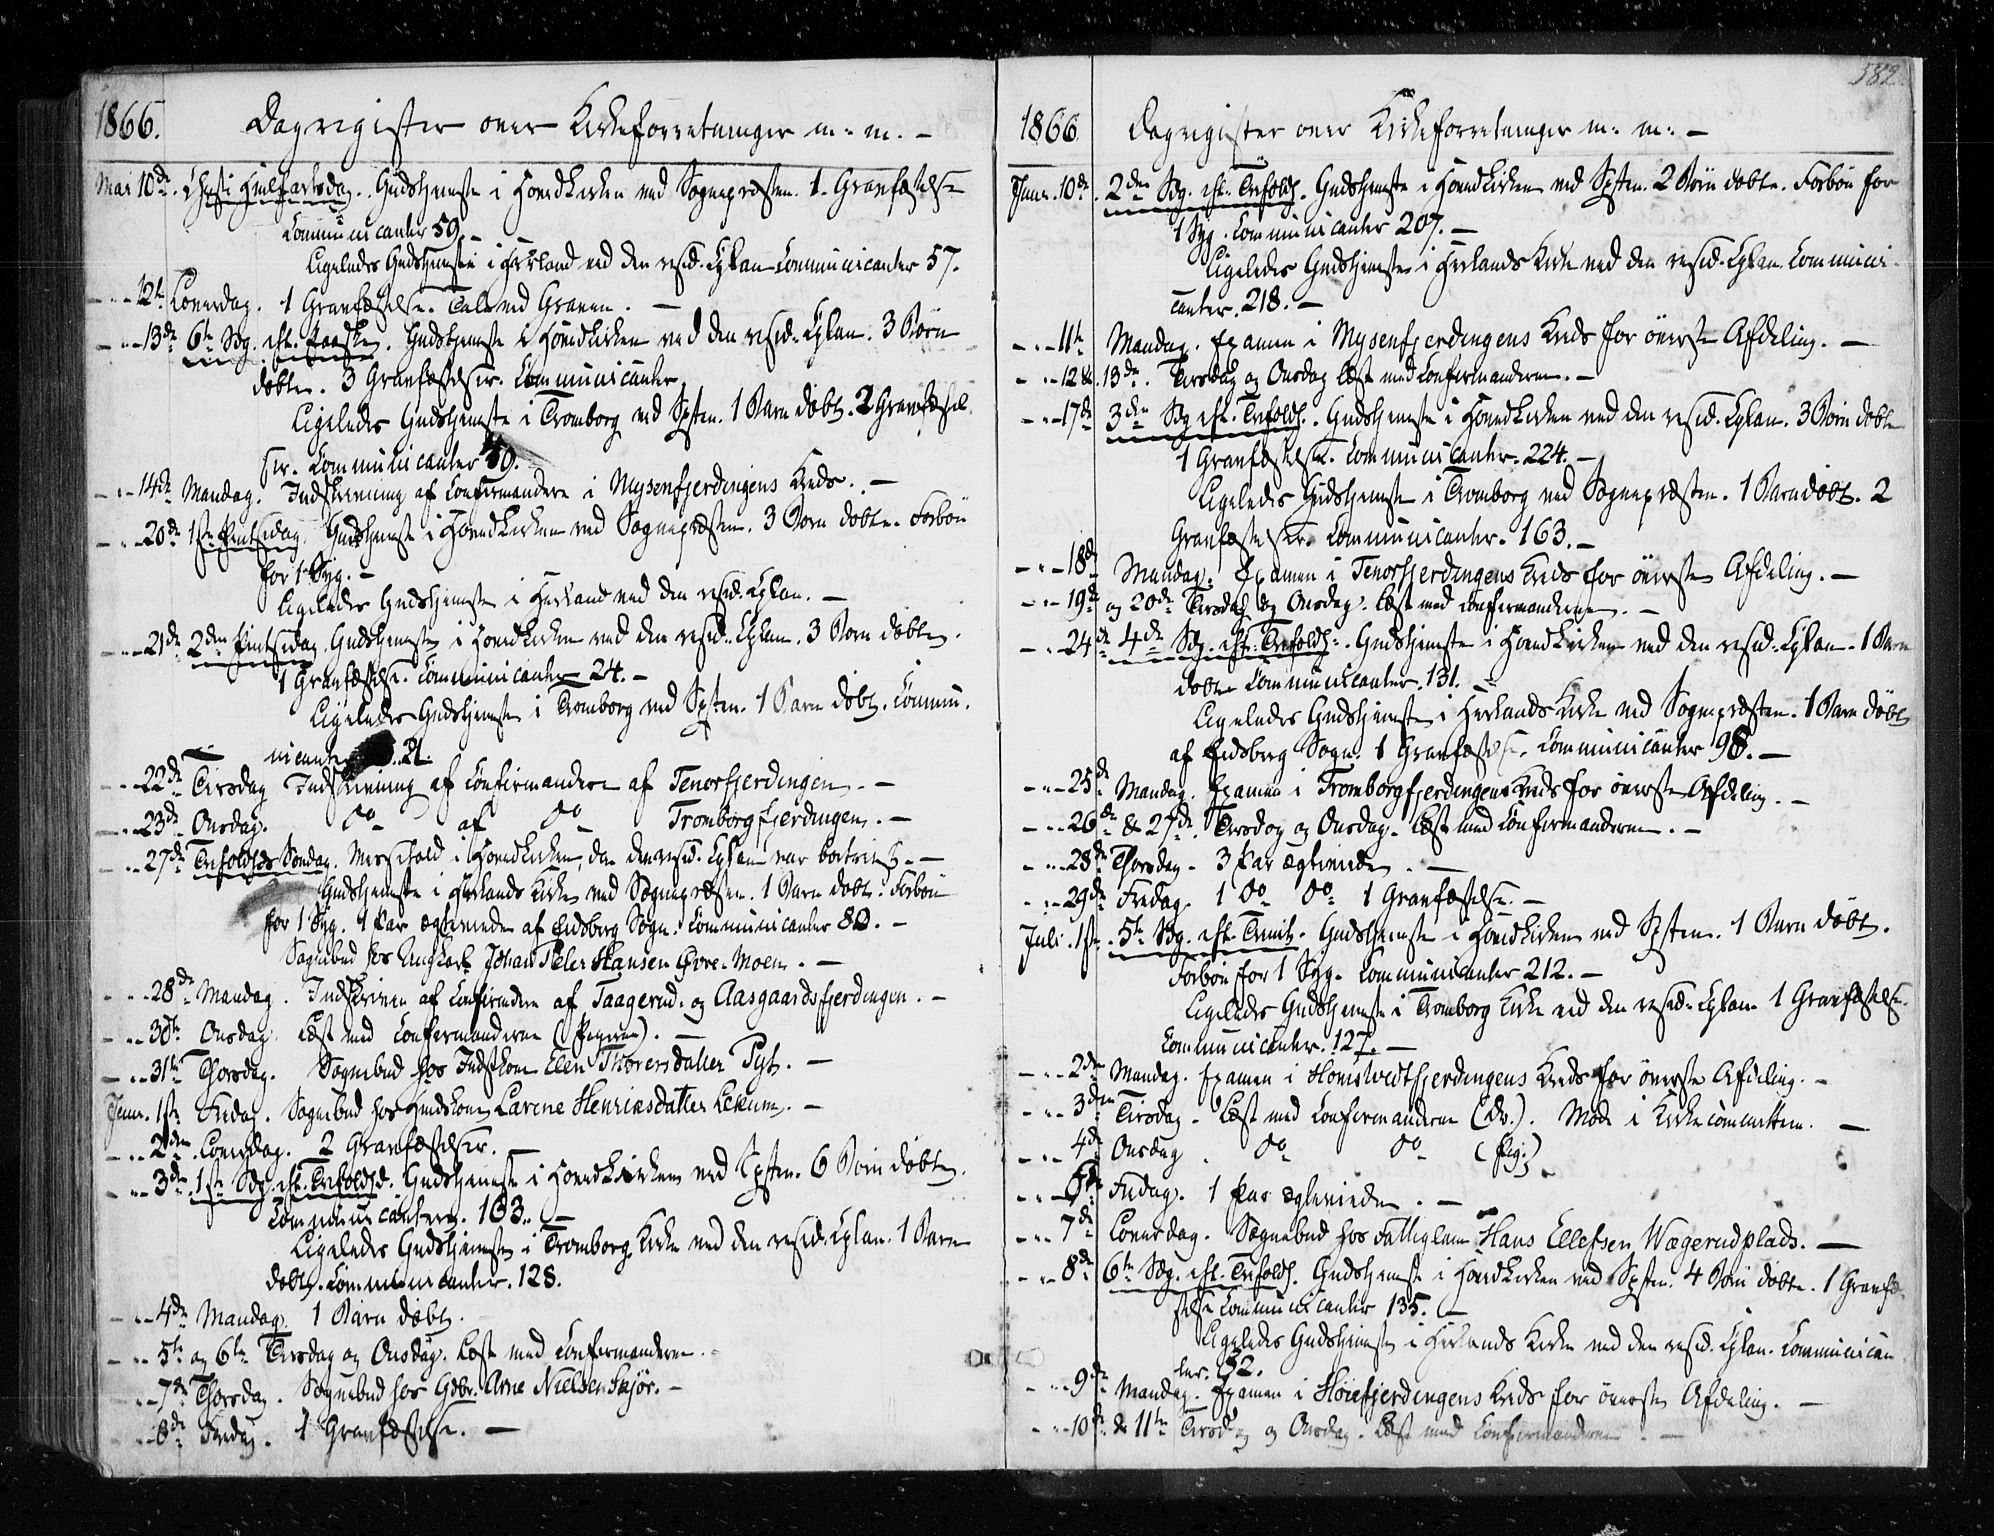 1866. Dagregister over Kirkeforretninger m. m. –
Mai 10de. Christi Himlfartsdag. Gudstjeneste i Hovedkirken ved Sognepræsten. 1. Gravfæstelse
Communicanter 59. –
Ligeledes Gudstjeneste i Herland ved den resid. Cplan. Communicanter 57.
– „ – 12te Løverdag. 1 Gravfæstelse. Tale ved Graven. –
– „ – 13de 6te Sdg. eft. Paaske. Gudstjeneste i Hovedkirken ved den resid. Cplan. 3 Børn
døbte. 3 Gravfæstelser. Communicanter
Ligeledes Gudstjeneste i Tromborg ved Spsten. 1 Barn døbt. 2 Gravfæstel-
ser. Communicanter 49.
– „ – 14de Mandag. Indskrivning af Confirmandere i Mysenfjerdingens Kreds. –
– „ – 20de 1ste Pintsedag. Gudstjeneste i Hovedkirken ved Sognepræsten. 3 Børn døbte. Forbøn
for 1 Syg. –
Ligeledes Gudstjeneste i Herland ved den resid. Cplan. –
– „ – 21de 2den Pintsedag. Gudstjeneste i Hovedkirken ved den resid. Cplan. 3 Børn døbte.
1 Gravfæstelse. Communicanter 24. –
Ligeledes Gudstjeneste i Tromborg ved Spsten. 1 Barn døbt. Commu-
nicanter 21.
– „ – 22de Tirsdag Indskrivning af Confirmandere af Tenorfjerdingen. –
– „ – 23de Onsdag. do af do Tromborgfjerdingen. –
– „ – 27de Trefoldhds Søndag. Messefald i Hovedkirken, da den resid. Cplan var bortreist. –
Gudstjeneste i Herlands Kirke ved Sognepræsten. 1 Barn døbt. Forbøn
for 1 Syg. 1 Par ægteviede af Eidsberg Sogn. Communicanter 80. –
Sognebud hos Ungkarl Johan Peter Hansen Øvre-Moen. –
– „ – 28de Mandag. Indskriven af Confirmdere af Taagerud- og Aasgaardsfjerdingen. –
– „ – 30te Onsdag. Læst med Confirmanderne (Pigerne).
– „ – 31te Thorsdag. Sognebud hos Indstkone Ellen Thorersdatter Pyt. –
Juni. 1ste Fredag. Sognebud hos Huuskone Larine Henriksdatter Lekum. –
– „ – 2den Løverdag. 2 Gravfæstelser.
– „ – 3de 1ste Sdg. eft. Trefoldhd. Gudstjeneste i Hovedkirken ved Spsten. 6 Børn døbte.
Communicanter. 163. –
Ligeledes Gudstjeneste i Tromborg Kirke ved den resid. Cplan. 1 Barn
døbt. Communicanter. 128.
– „ – 4de Mandag. 1 Barn døbt.
– „ – 5te og 6te Tirsdag og Onsdag. Læst med Confirmanderne.
– „ – 7de Thorsdag. Sognebud hos Gdbr. Arne Nielsen Skjør. –
– „ – 8de Fredag. 1 Gravfæstelse. –
582.
1866. Dagregister over Kirkeforretninger m. m. –
Juni. 10de. 2den Sdg. eft. Trefoldh. Gudstjeneste i Hovedkirken ved Spsten. 2 Børn døbte. Forbøn for
1 Syg. Communicanter 207. –
Ligeledes Gudstjeneste i Herlands Kirke ved den resid. Cplan. Communi-
canter. 218. –
– „ – 11te Mandag. Examen i Mysenfjerdingens Kreds for øverste Afdeling. –
– „ – 12 & 13de. Tirsdag og Onsdag læst med Confirmanderne. –
– „ – 17de 3die Sdg eft. Trefoldh. Gudstjeneste i Hovedkirken ved den resid. Cplan. 3 Børn døbte
1 Gravfæstelse. Communicanter. 224. –
Ligeledes Gudstjeneste i Tromborg ved Sognepræsten. 1 Barn døbt. 2
Gravfæstelser. Communicanter. 163. –
– „ – 18de Mandag. Examen i Tenorfjerdingens Kreds for øverste Afdeling. –
– „ – 19de og 20de Tirsdag og Onsdag. læst med Confirmanderne. –
– „ – 24de 4de Sdg. eft. Trefoldh. Gudstjeneste i Hovedkirken ved den resid. Cplan. 1 Barn
døbt. Communicanter. 131. –
Ligeledes Gudstjeneste i Herlands Kirke ved Sognepræsten. 1 Barn døbt
af Eidsberg Sogn. 1 Gravfæstelse. Communicanter 98. –
– „ – 25de Mandag. Examen i Tromborgfjerdingens Kreds for øverste Afdeling. –
– „ – 26de & 27de. Tirsdag og Onsdag. Læst med Confirmanderne. –
– „ – 28de Thorsdag. 3 Par ægteviede. –
– „ – 29de Fredag. 1 do do 1 Gravfæstelse. –
Juli. 1ste. 5te Sdg. eft. Trinit. Gudstjeneste i Hovedkirken ved Spsten. 1 Barn døbt.
Forbøn for 1 Syg. Communicanter 212. –
Ligeledes Gudstjeneste i Tromborg Kirke ved den resid. Cplan. 1 Gravfæstelse.
Communicanter. 127. –
– „ – 2den Mandag. Examen i Homstvedtfjerdingens Kreds for øverste Afdeling. –
– „ – 3die Tirsdag. Læst med Confirmanderne (Dr.). Møde i Kirkecommitteen. –
– „ – 4de Onsdag. do do (Pig.)
– „ – 6te Fredag. 1 Par ægteviede. –
– „ – 7de Løverdag. Sognebud hos Fattiglem Hans Ellefsen Wægerudplads. –
– „ – 8de 6te Sdg. eft. Trefoldh. Gudstjeneste i Hovedkirken ved Spsten. 4 Børn døbte. 1 Gravfæ-
stelse Communicanter 135. –
Ligeledes Gudstjeneste i Herlands Kirke ved den resid. Cplan. Communican-
ter. 92.
– „ – 9de Mandag. Examen i Høiefjerdingens Kreds for øverste Afdeling. –
– „ – 10de & 11te Tirsdag og Onsdag. Læst med Confirmanderne. –